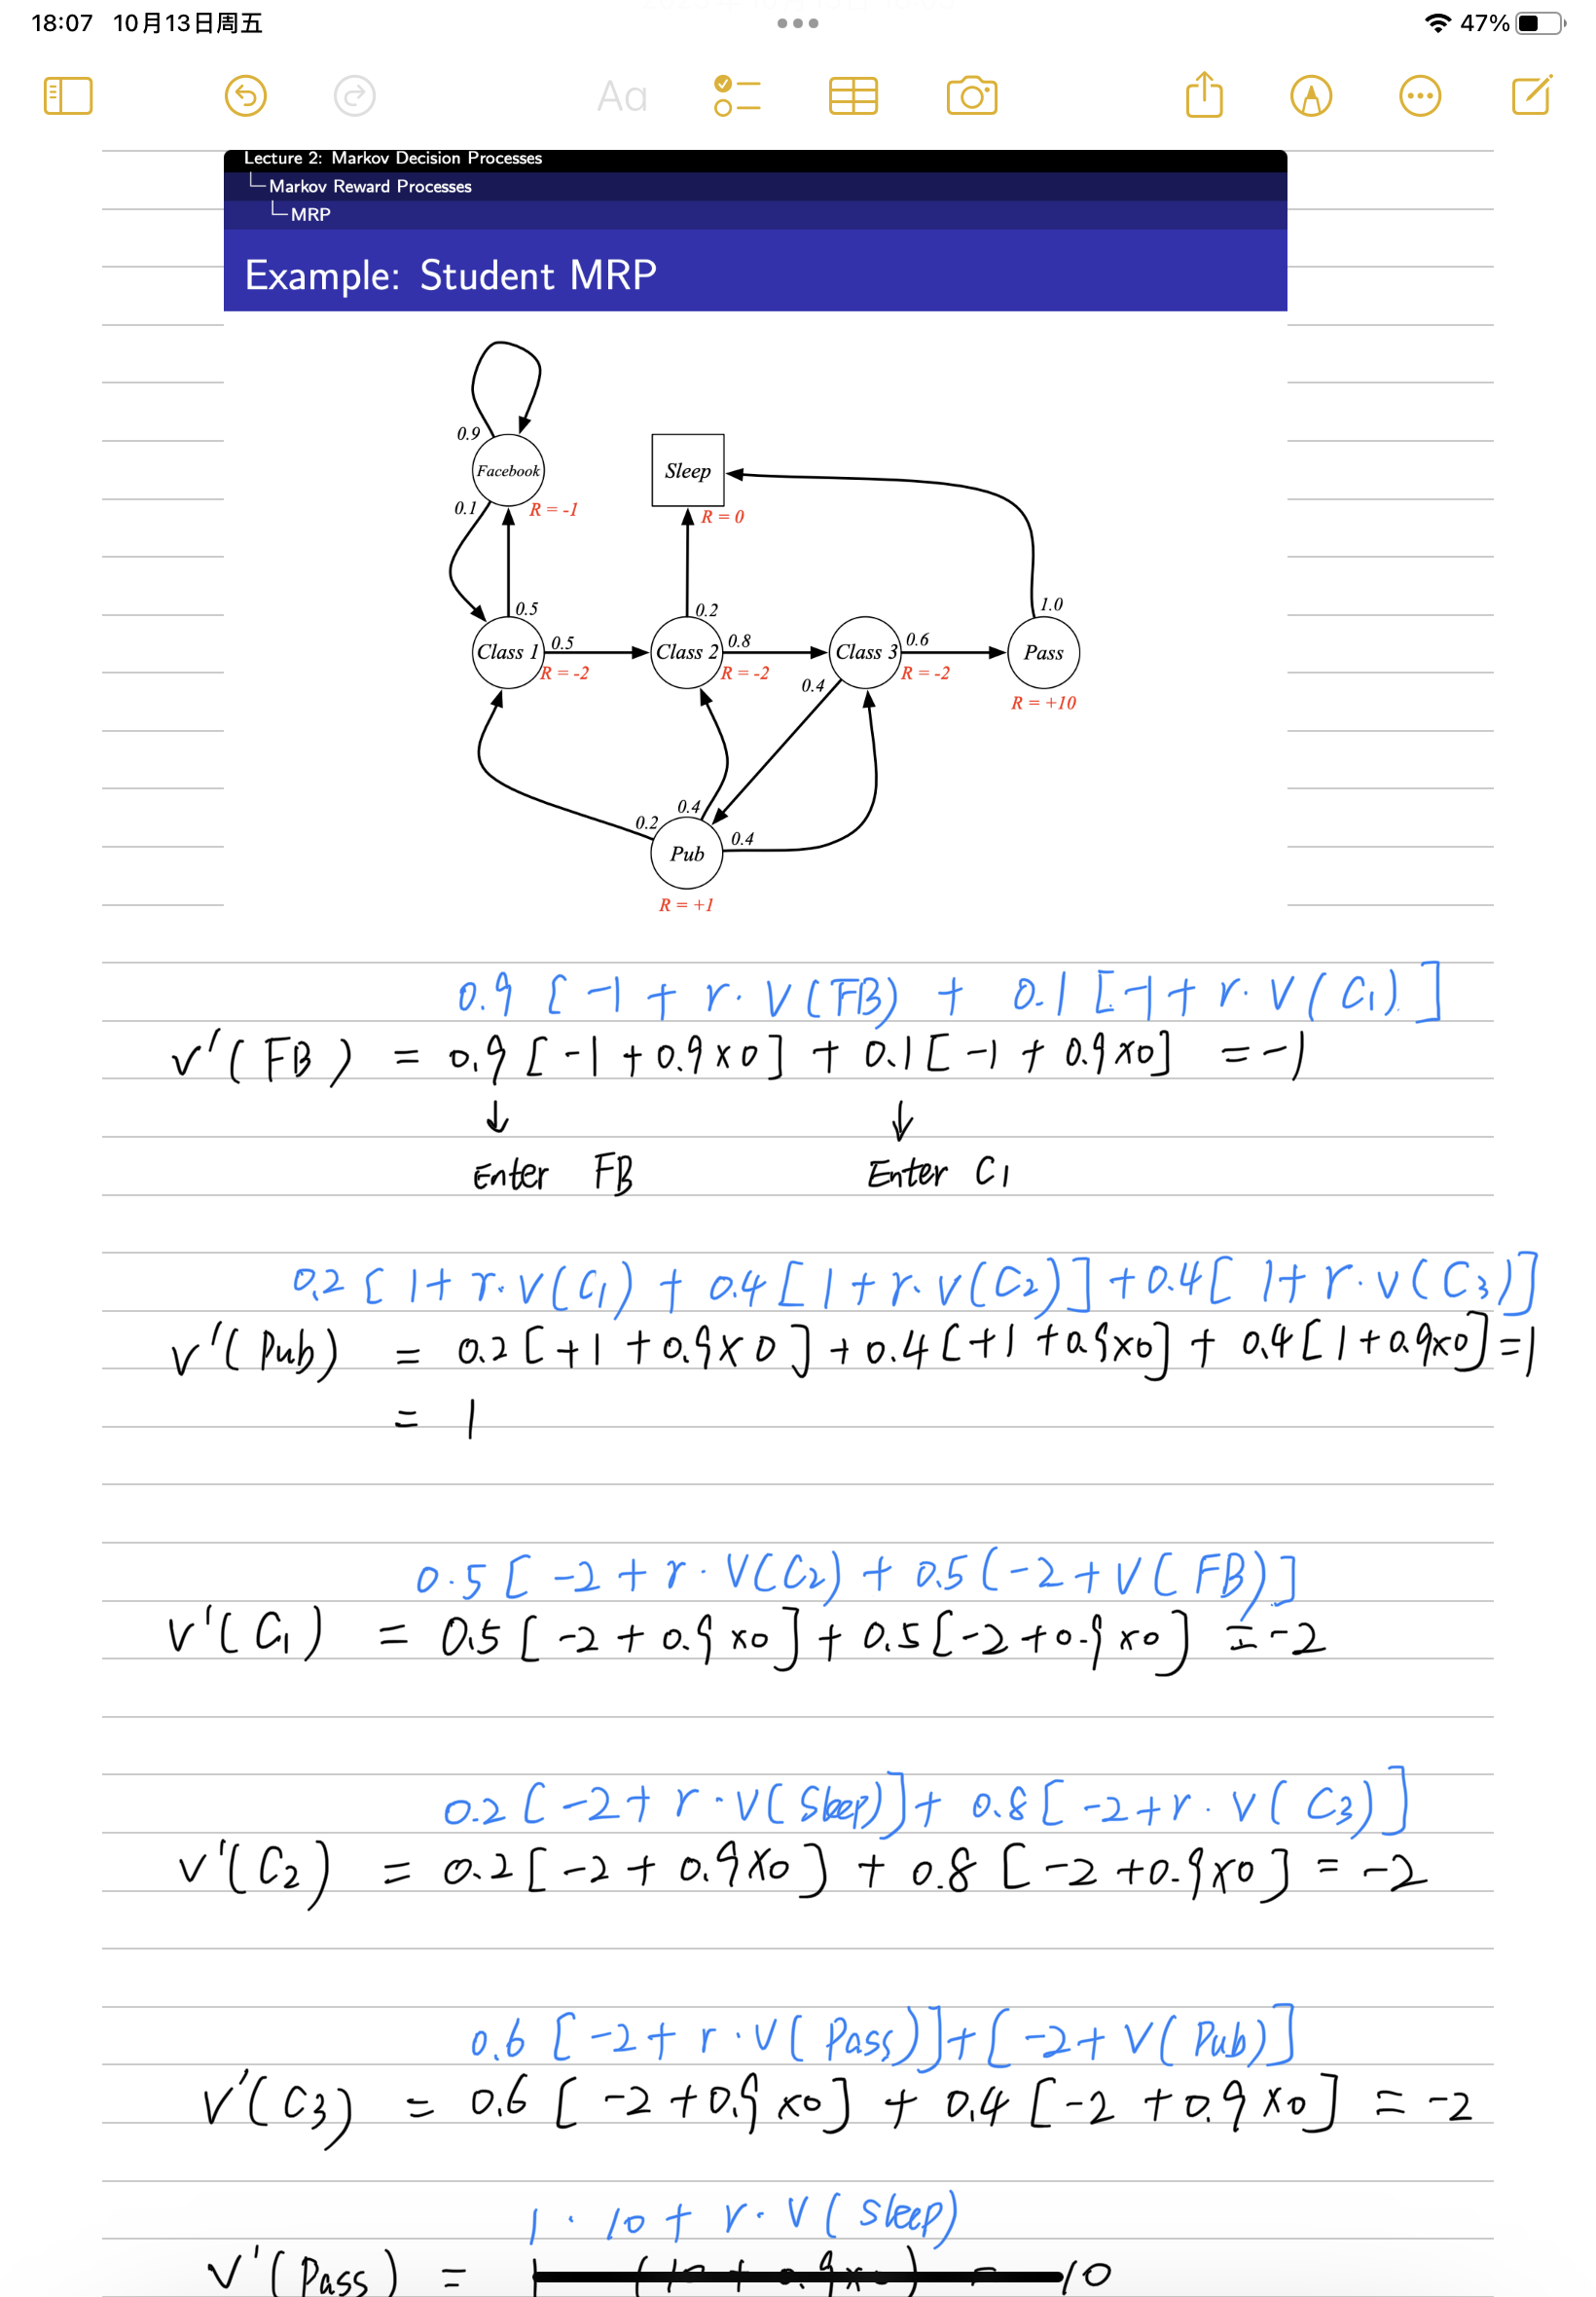 18:07 10月13日周五
47%
Aa
Lecture 2: Markov Decision Processes
Markov Reward Processes
MRP
Example: Student MRP
0.9
Facebook
Sleep
0.1
R = -1
R = 0
0.5
0.2
1.0
Class 1
0.5
Class 2
0.8
Class 3
0.6
Pass
R = -2
R = -2
R = -2
0.4
R = +10
0.4
0.2
0.4
Pub
R = +1
0.9 [ -1 + r· V(FB) + 0.1 [-1 + r· V(C₁) ]
v'(FB) = 0.9 [ -1 + 0.9 × 0 ] + 0.1 [ -1 + 0.9 × 0 ] = -1
↓ ↓
Enter FB Enter C1
0.2 [ 1 + r· V(C₁) + 0.4 [ 1 + r· v(C₂) ] + 0.4 [ 1 + r· v(C₃) ]
v'(Pub) = 0.2 [ +1 + 0.9 × 0 ] + 0.4 [ +1 + 0.9 × 0 ] + 0.4 [ 1 + 0.9 × 0 ] = 1
= 1
0.5 [ -2 + r · V(C₂) + 0.5 ( -2 + V(FB) ]
v'(C₁) = 0.5 [ -2 + 0.9 × 0 ] + 0.5 [ -2 + 0.9 × 0 ] = -2
0.2 [ -2 + r · V(Sleep) ] + 0.8 [ -2 + r · V(C₃) ]
v'(C₂) = 0.2 [ -2 + 0.9 × 0 ] + 0.8 [ -2 + 0.9 × 0 ] = -2
0.6 [ -2 + r · V(Pass) ] + [ -2 + V(Pub) ]
v'(C3) = 0.6 [ -2 + 0.9 × 0 ] + 0.4 [ -2 + 0.9 × 0 ] = -2
1 · 10 + r · V(Sleep)
v'(Pass) = 10